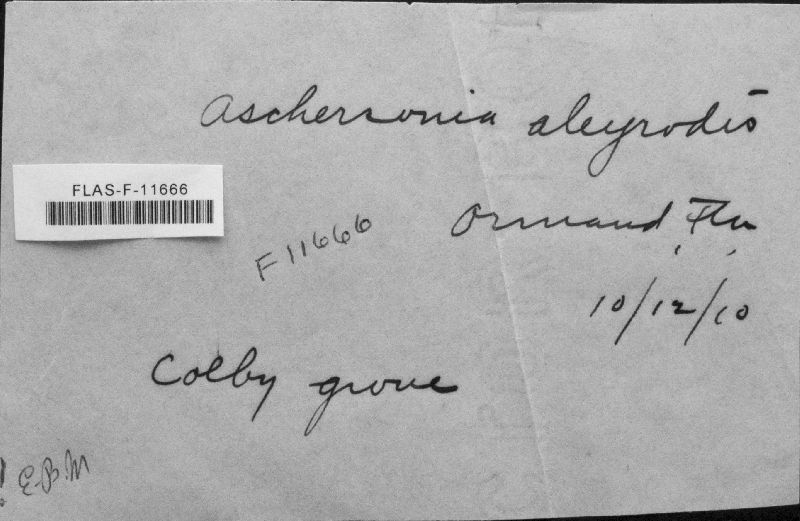 Aschersonia aleyrodis
FLAS-F-11666
Ormand, Fla.
F11666
10/12/10
Colby grove
! E.B.M